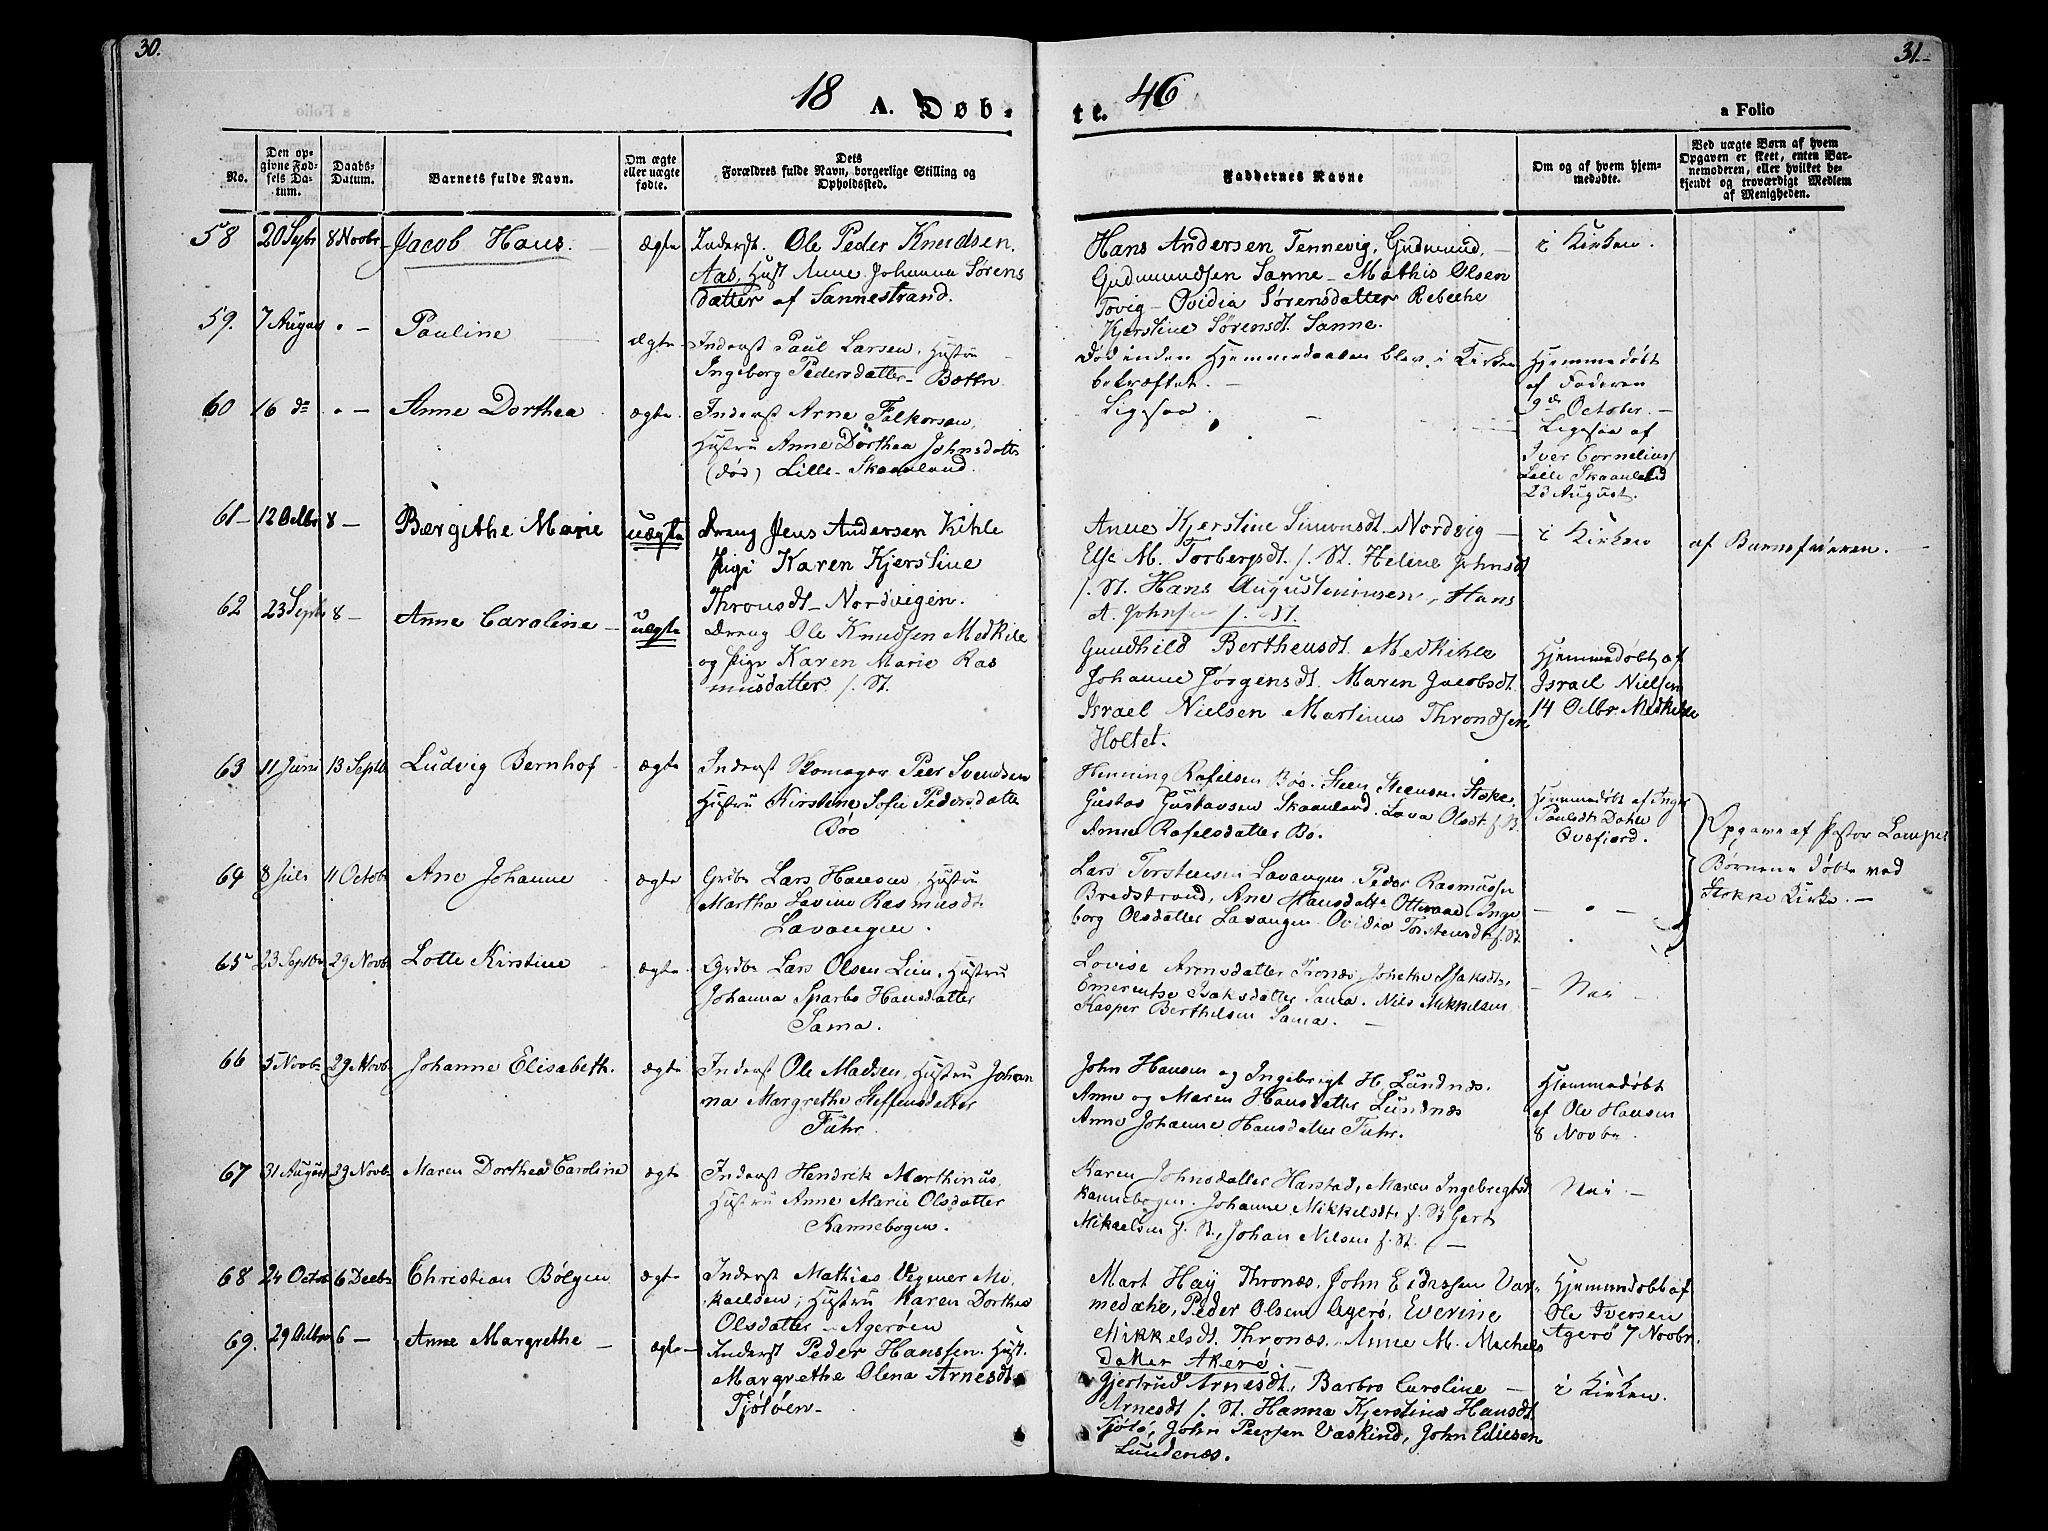 30.
31.
18
46
A. Døb-
te.
a Folio
No.
Den op-
givne Fød-
sels Da-
tum.
Daabs-
Datum.
Barnets fulde Navn.
Om ægte
eller uægte
fødte.
Dets
Forældres fulde Navn, borgerlige Stilling og
Opholdssted.
Faddernes Navne
Om og af hvem hjem-
medøbte.
Ved uægte Børn af hvem
Opgaven er skeet, enten Bar-
nemoderen, eller hvilket be-
kjendt og troværdigt Medlem
af Menigheden.
58
20 Septbr
8 Novbr
Jacob Hans.
ægte
Inderst. Ole Peder Knudsen.
Aas, Hust Anne Johanna Sørens
datter af Sannestrand.
Hans Andersen Tennevig, Gudmund
Gudmundsen Sanne - Mathis Olsen
Tovig - Ovidia Sørensdatter Rebecke
Kjerstine Sørensdt. Sanne.
i Kirken.
59.
7 August
" -
Pauline
ægte
Inderst Paul Larsen, Hustru
Ingeborg Pedersdatter - Bottn.
Død inden Hjemmedaaben blev i Kirken
bekræftet. -
Hjemmedøbt
af Faderen
9de October. -
60
16 do
" -
Anne Dorthea
ægte
Inderst Arne Falkorsen,
Hustru Anne Dorthea Johnsdatter
(død) Lille-Skaanland.
Ligesaa.
Ligesaa af
Iver Cornelius
Lille Skaanland
23 August.
61-
12 Octbr
8 -
Bergithe Marie
uægte
Dreng Jens Andersen Kihle
Pige Karen Kjerstine
Thronsdt - Nordvigen.
Anne Kjerstine Simonsdt Nordvig -
Else M. Torbergsdt. f. St. Helene Johnsdt
f. St. Hans Augustinusen, Hans
A. Johnsen f. St.
i Kirken
af Barnefaderen. -
62
23 Septb
8 -
Anne Caroline -
uægte
Dreng Ole Knudsen Medkile
og pige Karen Marie Ras
musdatter f. St.
Gundhild Berthensdt Medkihle
Johanne Jørgensdt. Maren Jacobsdt.
Israel Nielsen Martinus Throndsen
Holtet.
Hjemmedøbt af
Israel Nielsen
14 Octbr Medkihle
63
11 Juni
13 Septb
Ludvig Bernhof
ægte
Inderst Skomager Peer Svendsen
Hustru Kirstine Sofie Pedersdatter
Bøe
Henning Rafelsen Bøe. Steen Steensen Stokke,
Gustav Gustavsen Skaanland. Lava Olsdt f. St.
Anne Rafelsdatter Bø.
Hjemmedøbt af Inger
Paulsdt Dahle
Qvæfjord.
Opgave af Pastor Lampe
Børnene døbte ved
Stokke Kirke. -
64
8 Juli
11 Octob
Ane Johanne
ægte
Grdbr Lars Hansen, Hustru
Martha Lavine Rasmusdt
Lavangen.
Lars Torstensen Lavangen. Peder Rasmussen
Bredstrand, Ane Hansdatter Inge
borg Olsdatter Lavangen Ovidia Torstensdt f. St.
- " -
65
23 Septbr
29 Novb
Lotte Kirstine
ægte
Grdbr Lars Olsen Lien. Hustru
Johanna Sparbo Hansdatter
Sama.
Lovise Aronsdatter Tronæs, Isaksdt.,
Emerentse Isaksdatter Sama. Nils Mikkelsen
Kasper Berthelsen Sama. -
Nei -
66
5 Novbr
29 Novb
Johanne Elisabeth.
ægte
Inderst Ole Madsen, Hustru Johan
na Margrethe Steffensdatter
Fuhr.
John Hansen og Ingebrigt H. Lundnæs.
Anne og Maren Hansdatter Lundnæs
Anne Johanne Hansdatter Fuhr.
Hjemmedøbt
af Ole Hansen
8 Novbr.
67
31 August
29 Novb
Maren Dorthea Caroline
ægte
Inderst Hendrik Marthinus,
Hustru Anne Marie Olsdatter
Kannebogen.
Karen Johnsdatter Harstad, Maren Ingebrigtsdt
Kannebogen. Johanne Mikkelsdt. f. St Gert
Mikaelsen f. St., Johan Nilsen f. St. -
Nei -
68
24 Octob
6 Decbr
Christian Bølgen
ægte
Inderst Mathias Vegner Mi-
kaelsen, Hustru Karen Dorthea
Olsdatter - Agerøen
Mart Hay Thronæs, John Edissen Var-
medæhe, Peder Olsen Agerø, Everine
Mikkelsdt. Thronæs. Anne M. Michels
datter Akerø. -
Hjemmedøbt af
Ole Iversen
Agerø 7 Novbr.
69.
29 Octbr
6 -
Anne Margrethe -
ægte -
Inderst Peder Hanssen. Hust.
Margrethe Olena Arnesdt.
Tjøtøen -
Gjertrud Arnesdt., Barbro Caroline -
Arnesdt f. St. Hanna Kjerstine Hansdt
Tjøtø, John Peersen Vaskind, John Ediesen
Lundenæs.
i Kirken.